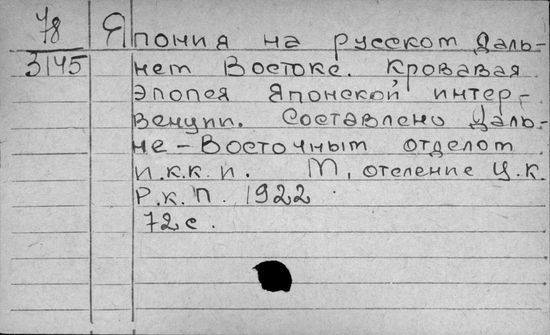 78 Япония на русском Даль-
3145 нем Востоке. Кровавая
эпопея Японской интер-
венции. Составлено Даль-
не-Восточным отделом
И.К.К.И. М, отеление Ц.К.
Р.К.П. 1922
72 с.